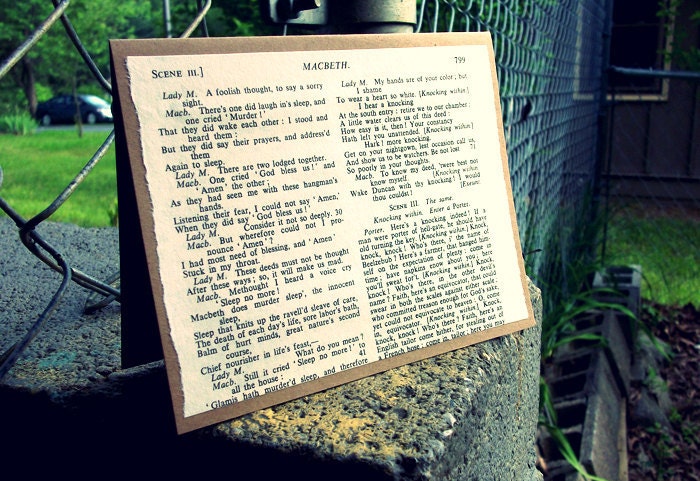 SCENE III.] MACBETH. 799
Lady M. A foolish thought, to say a sorry
sight.
Macb. There's one did laugh in's sleep, and
one cried 'Murder!'
That they did wake each other: I stood and
heard them:
But they did say their prayers, and address'd
them
Again to sleep.
Lady M. There are two lodged together.
Macb. One cried 'God bless us!' and
'Amen' the other;
As they had seen me with these hangman's
hands.
Listening their fear, I could not say 'Amen,'
When they did say 'God bless us!'
Lady M. Consider it not so deeply. 30
Macb. But wherefore could not I pro-
nounce 'Amen'?
I had most need of blessing, and 'Amen'
Stuck in my throat.
Lady M. These deeds must not be thought
After these ways; so, it will make us mad.
Macb. Methought I heard a voice cry
'Sleep no more!
Macbeth does murder sleep', the innocent
sleep,
Sleep that knits up the ravell'd sleave of care,
The death of each day's life, sore labor's bath,
Balm of hurt minds, great nature's second
course,
Chief nourisher in life's feast,—
Lady M. What do you mean?
Macb. Still it cried 'Sleep no more!' to
all the house: 41
'Glamis hath murder'd sleep, and therefore
Lady M. My hands are of your color; but
I shame
To wear a heart so white. [Knocking within.]
I hear a knocking
At the south entry: retire we to our chamber:
A little water clears us of this deed:
How easy is it, then! Your constancy
Hath left you unattended. [Knocking within.]
Hark! more knocking.
Get on your nightgown, lest occasion call us,
And show us to be watchers. Be not lost 71
So poorly in your thoughts.
Macb. To know my deed, 'twere best not
know myself. [Knocking within.
Wake Duncan with thy knocking! I would
thou couldst! [Exeunt.
SCENE III. The same.
Knocking within. Enter a Porter.
Porter. Here's a knocking indeed! If a
man were porter of hell-gate, he should have
old turning the key. [Knocking within.] Knock,
knock, knock! Who's there, i' the name of
Beelzebub? Here's a farmer, that hanged him-
self on the expectation of plenty: come in
time; have napkins enow about you; here
you'll sweat for't. [Knocking within.] Knock,
knock! Who's there, in the other devil's
name? Faith, here's an equivocator, that could
swear in both the scales against either scale;
who committed treason enough for God's sake,
yet could not equivocate to heaven: O, come
in, equivocator. [Knocking within.] Knock,
knock, knock! Who's there? Faith, here's an
English tailor come hither, for stealing out of
a French hose: come in, tailor; here you may